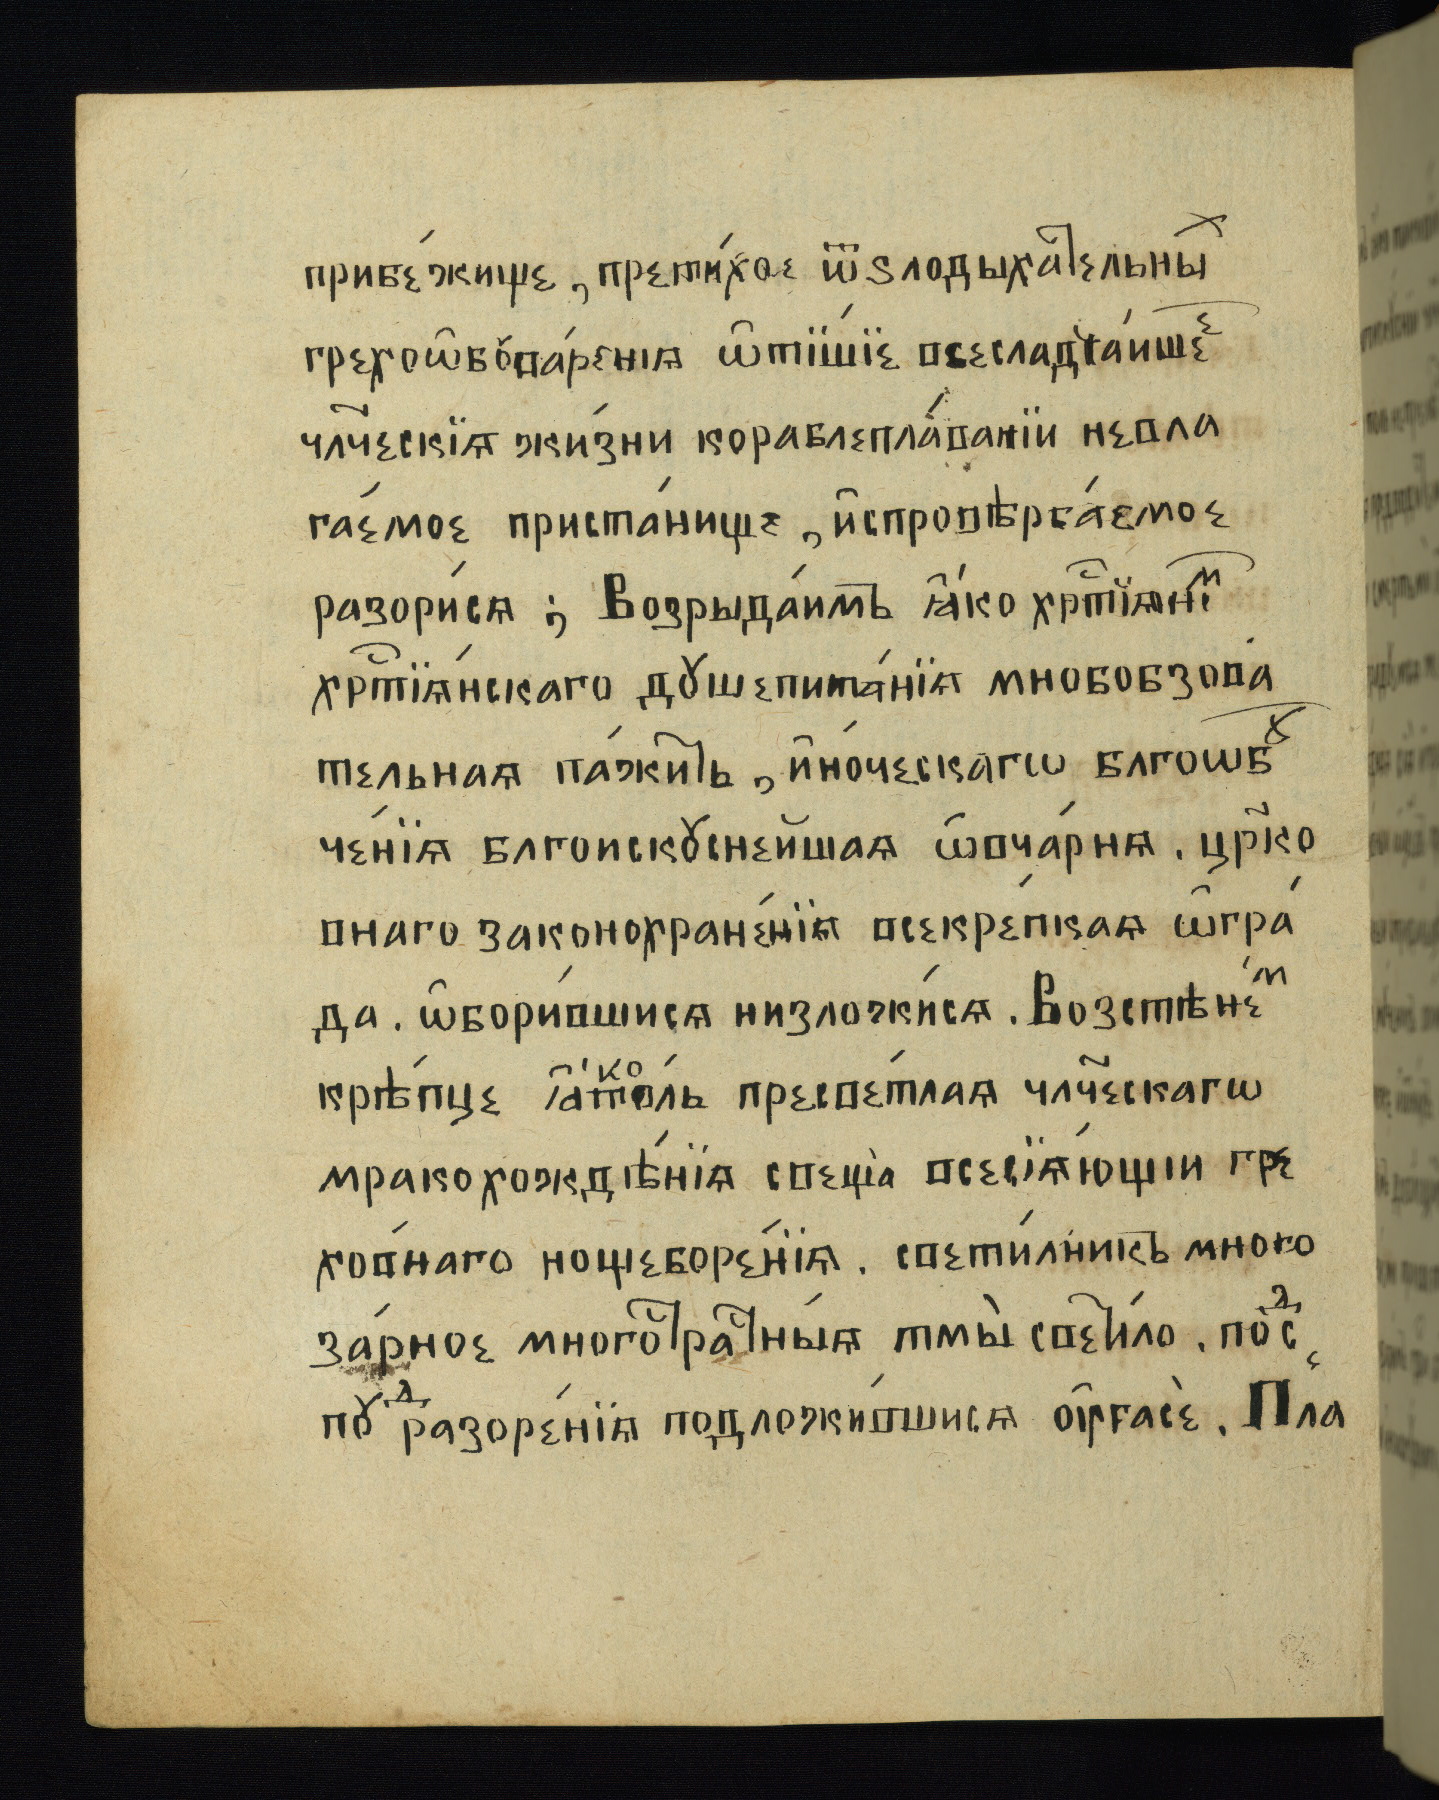 прибе́жище, прети́хое ѿѕлодыха́тельны̑х
грехоѡ҆бꙋрева́нїѧ ѡ҆ти́шїе всесладча́ише
чл҃ческїѧ жи́зни кораблепла́ванїи невла
га́емое приста́нище, и҆спровѣрга́емое
разори́сѧ ; Возрыда́имъ ꙗ҆́ко хрⷭ҇тїѧ́нїм
хрⷭ҇тїѧ́нскаго дꙋшепита́нїѧ многобзова́
тельнаѧ па́жить, и҆́ноческагѡ бл҃гоѡбꙋ
че́нїѧ бл҃гоискꙋснейшаѧ ѡ҆вча́рнѧ. црⷪ҇ко
внаго законохране́нїѧ всекре́пкаѧ ѡ҆гра́
да. ѡ҆бори́вшисѧ низложи́сѧ. Возстѣне́м
крѣ́пце ꙗ҆́ко то́ль пресве́тлаѧ чл҃ческагѡ
мракохождѣ́нїѧ свеща̀ всесїѧ́ющїи гре
хо́внаго нощеборе́нїѧ. свети́лникъ много
за́рное многостра́стныѧ тмы̀ свети́ло. под с
пꙋд разоре́нїѧ подложи́вшисѧ ᲂу҆гасѐ. Пла